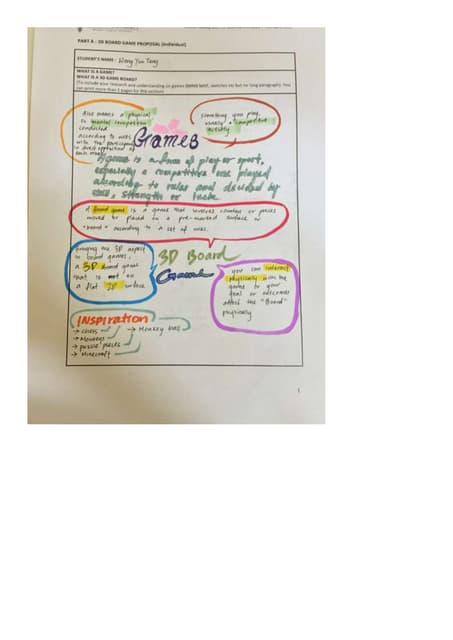 PART A : 3D BOARD GAME PROPOSAL (Individual)
STUDENT'S NAME : Wong Yun Teng
WHAT IS A GAME?
WHAT IS A 3D GAME BOARD?
(To include your research and understanding on games
can print more than 1 pages for this section)
Also means a physical
or mental competition
conducted
according to rules
with the participants
in direct opposition of
each other
something you play,
usually a competitive
activity
Games
is a form of play or sport,
especially a competitive one played
according to rules and decided by
strength or luck.
A board game is a game that involves counters or pieces
moved or placed on a pre-marked surface or
"board" according to a set of rules.
bringing the 3D aspect
to board games,
a 3D board game
that is not on
a flat 2D surface
3D Board
Games
you can interact
physically with the
game to your
goal or outcomes
the "Board"
physically
INSPIRATION
→ chess
→ Monkey ball
→ puzzle pieces
→ Minecraft
1